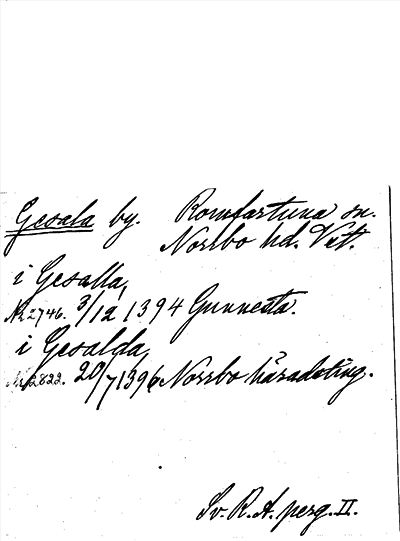 Gesala by. Romfartuna sn.
Norrbo hd. Vstt.
i Gesalla,
Nr 2746. 3/12 1394 Gunnesta.
i Gesalda,
Nr 2822. 20/7 1396 Norrbo häradsting.
Sv. R. A. perg. II.